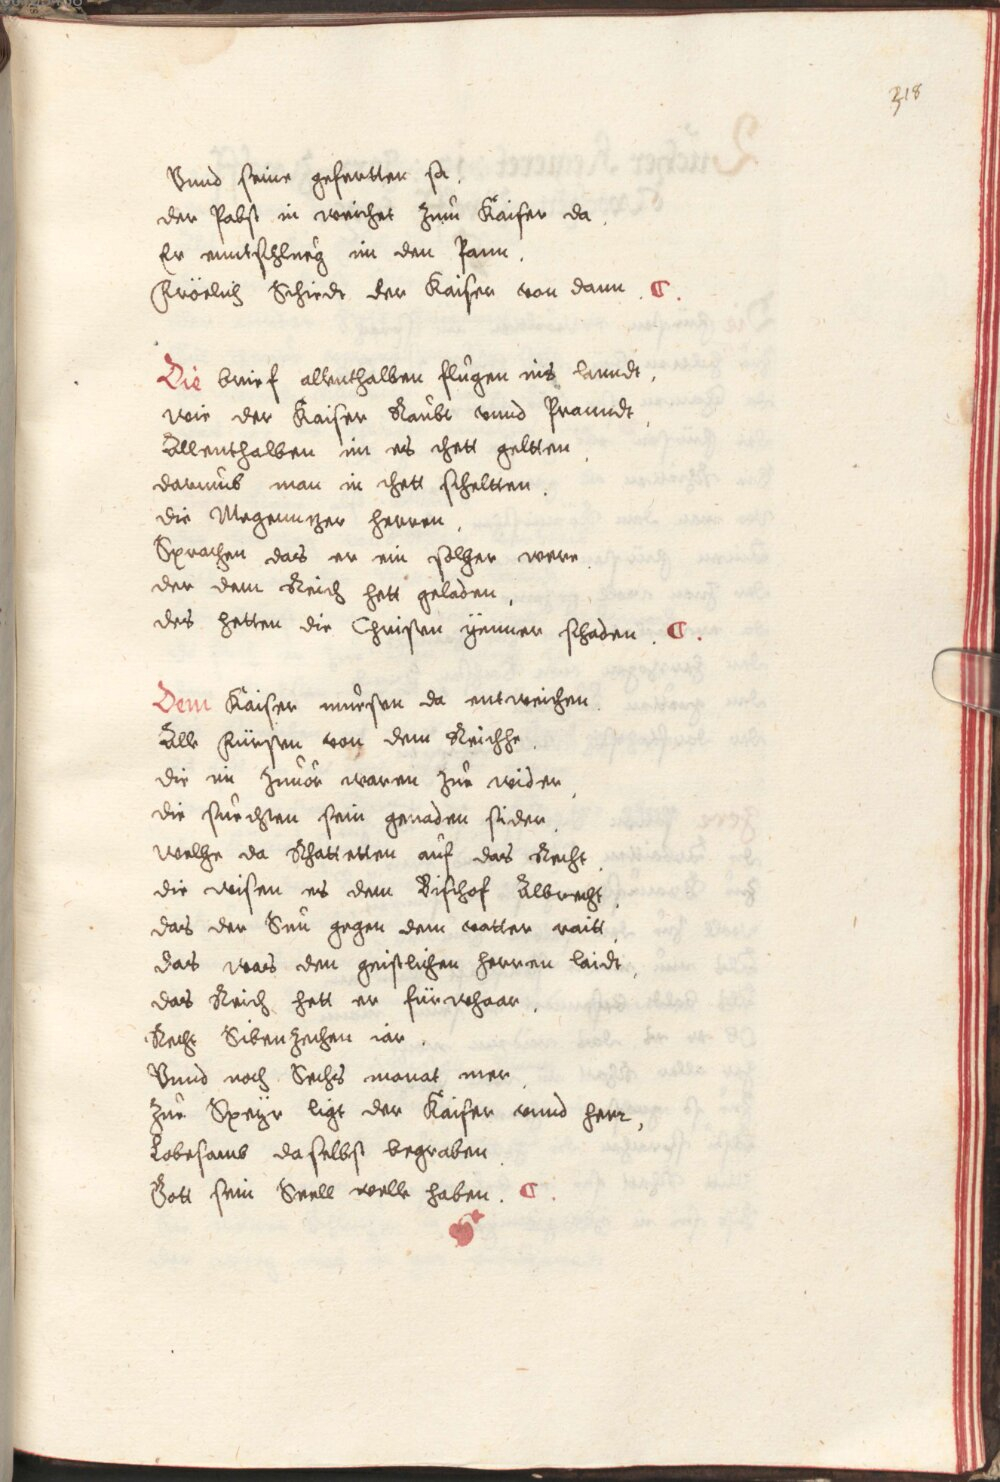 318
Vnnd seine geferttten sa.
der Pabst in weichet zum Kaiser da.
Er enntschlueg im den Pann.
Frölich Schiedt der Kaiser von dann. C.
Die brief allenthalben flugen ins lanndt,
wie der Kaiser Raubt vnnd Pranndt,
Allenthalben im es thett geltten,
darumb man in thett scheltten.
die Megenntzer herren,
Sprachen das er ein solher were.
der dem Reich hett geladen,
des hetten die Christen ÿmmer schaden. C.
Dem Kaiser muesen da entweichen.
Alle Fürsten von dem Reichhe.
die im zuuor waren zur wider,
die suechten sein genaden sider.
welhe da Khattetten auf das Recht,
die wisen es dem Bischof Albrecht,
das der Sun gegen dem vatter raitt,
das was den geistlichen herren laidt,
das Reich hett er fürwhaar,
Recht Sibenzechen iar.
Vnnd noch Sechs monat mer,
Zue Speÿr ligt der Kaiser vnnd herr,
Lobesamb daselbst begraben.
Gott sein Seell welle haben. C.